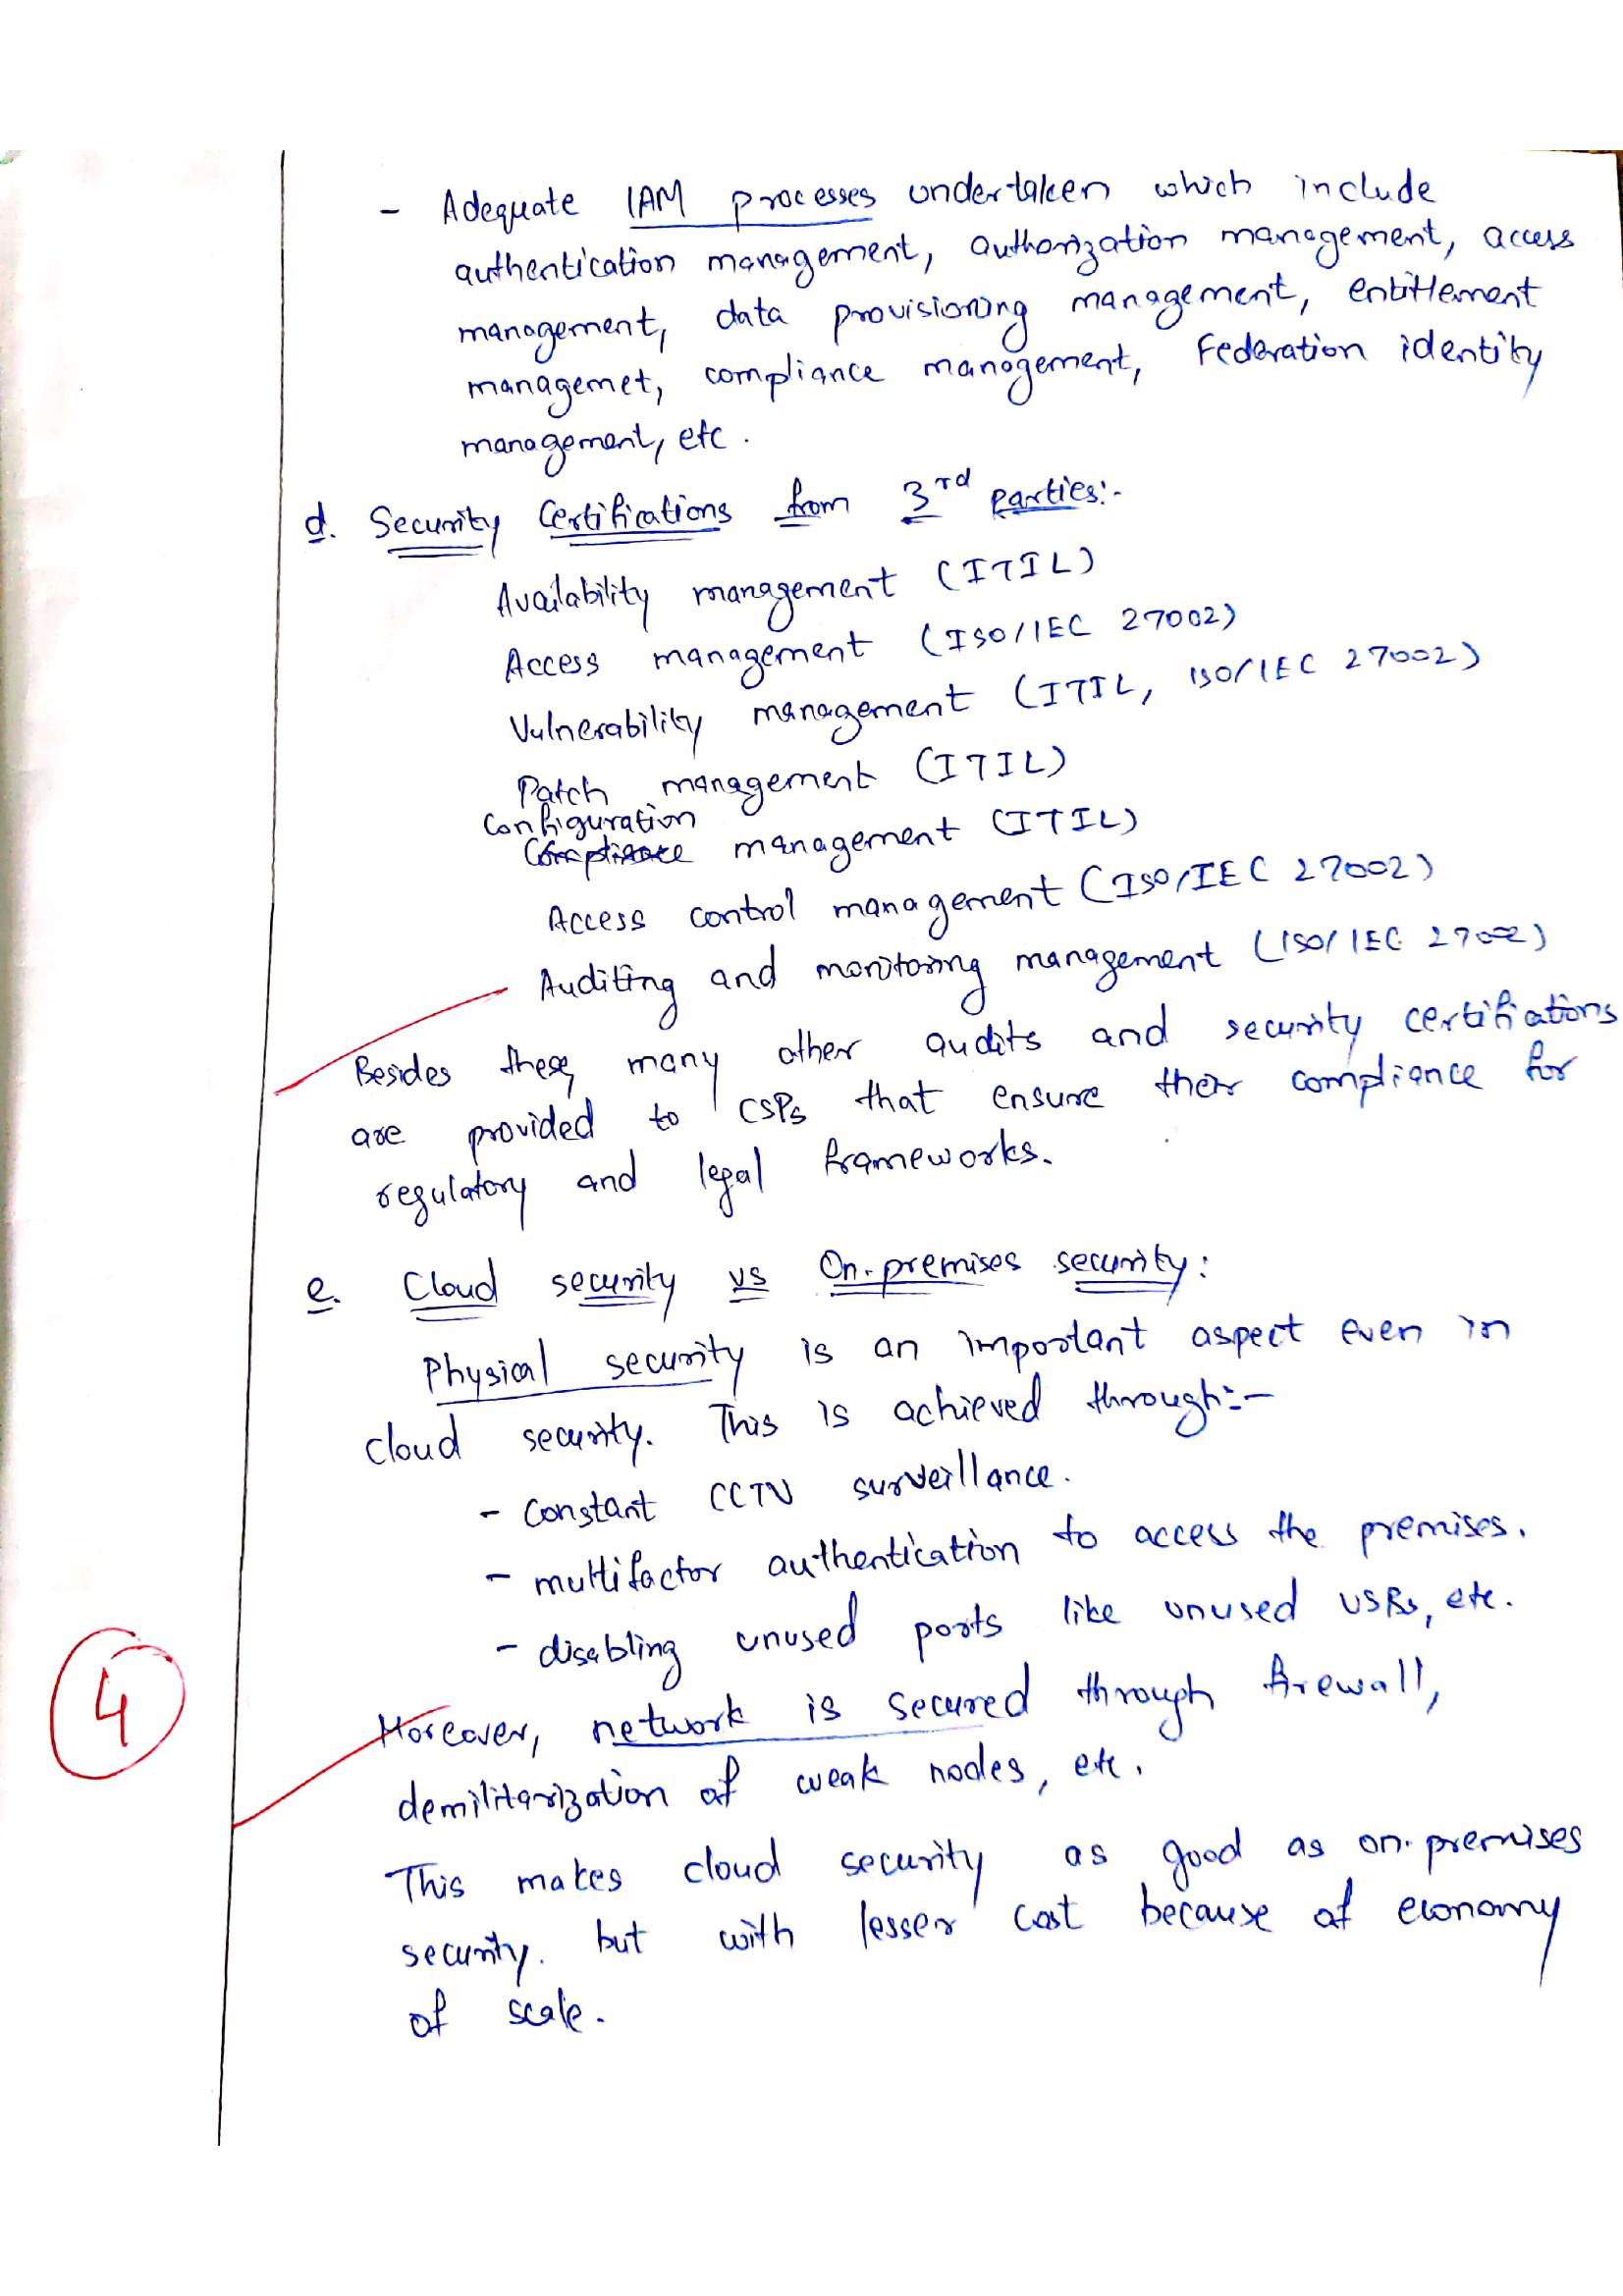 - Adequate IAM processes undertaken which include
authentication management, authorization management, access
management, data provisioning management, entitlement
managemet, compliance management, Federation identity
management, etc.
d. Security Certifications from 3rd parties:-
Availability management (ITIL)
Access management (ISO/IEC 27002)
Vulnerability management (ITIL, ISO/IEC 27002)
Patch management (ITIL)
Configuration
Compliance management (ITIL)
Access control management (ISO/IEC 27002)
Auditing and monitoring management (ISO/IEC 27002)
Besides these, many other audits and security certifications
are provided to CSPs that ensure their compliance for
regulatory and legal frameworks.
e. Cloud security vs On-premises security:
Physical security is an important aspect even in
cloud security. This is achieved through:-
- Constant CCTV surveillance.
- multifactor authentication to access the premises.
- disabling unused ports like unused USBs, etc.
4
Moreover, network is secured through firewall,
demilitarization of weak nodes, etc.
This makes cloud security as good as on-premises
security. but with lesser cost because of economy
of scale.